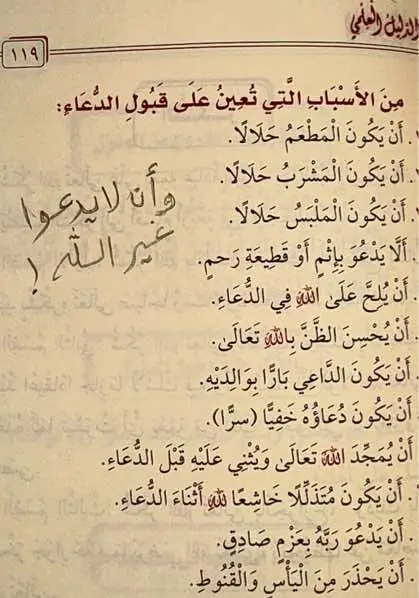 الدليل العلمي
١١٩
مِنَ الأَسْبَابِ الَّتِي تُعِينُ عَلَى قَبُولِ الدُّعَاءِ:
. أَنْ يَكُونَ الْمَطْعَمُ حَلَالًا.
. أَنْ يَكُونَ الْمَشْرَبُ حَلَالًا.
. أَنْ يَكُونَ الْمَلْبَسُ حَلَالًا.
وأن لا يدعوا
غير الله !
. أَلَّا يَدْعُوَ بِإِثْمٍ أَوْ قَطِيعَةِ رَحِمٍ.
. أَنْ يُلِحَّ عَلَى اللهِ فِي الدُّعَاءِ.
. أَنْ يُحْسِنَ الظَّنَّ بِاللهِ تَعَالَى.
. أَنْ يَكُونَ الدَّاعِي بَارًّا بِوَالِدَيْهِ.
. أَنْ يَكُونَ دُعَاؤُهُ خَفِيًّا (سِرًّا).
. أَنْ يُمَجِّدَ اللهَ تَعَالَى وَيُثْنِي عَلَيْهِ قَبْلَ الدُّعَاءِ.
. أَنْ يَكُونَ مُتَذَلِّلًا خَاشِعًا للهِ أَثْنَاءَ الدُّعَاءِ.
. أَنْ يَدْعُوَ رَبَّهُ بِعَزْمٍ صَادِقٍ.
. أَنْ يَحْذَرَ مِنَ الْيَأْسِ وَالْقُنُوطِ.